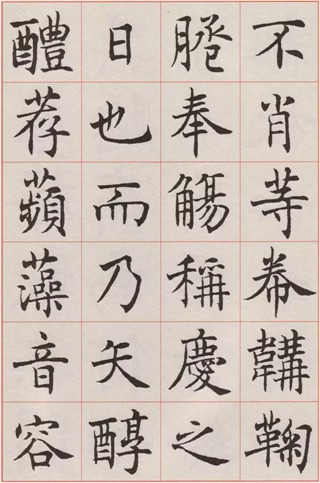 不肖等帣韝鞠
𦡀奉觴稱慶之
日也而乃矢醇
醴荐蘋藻音容